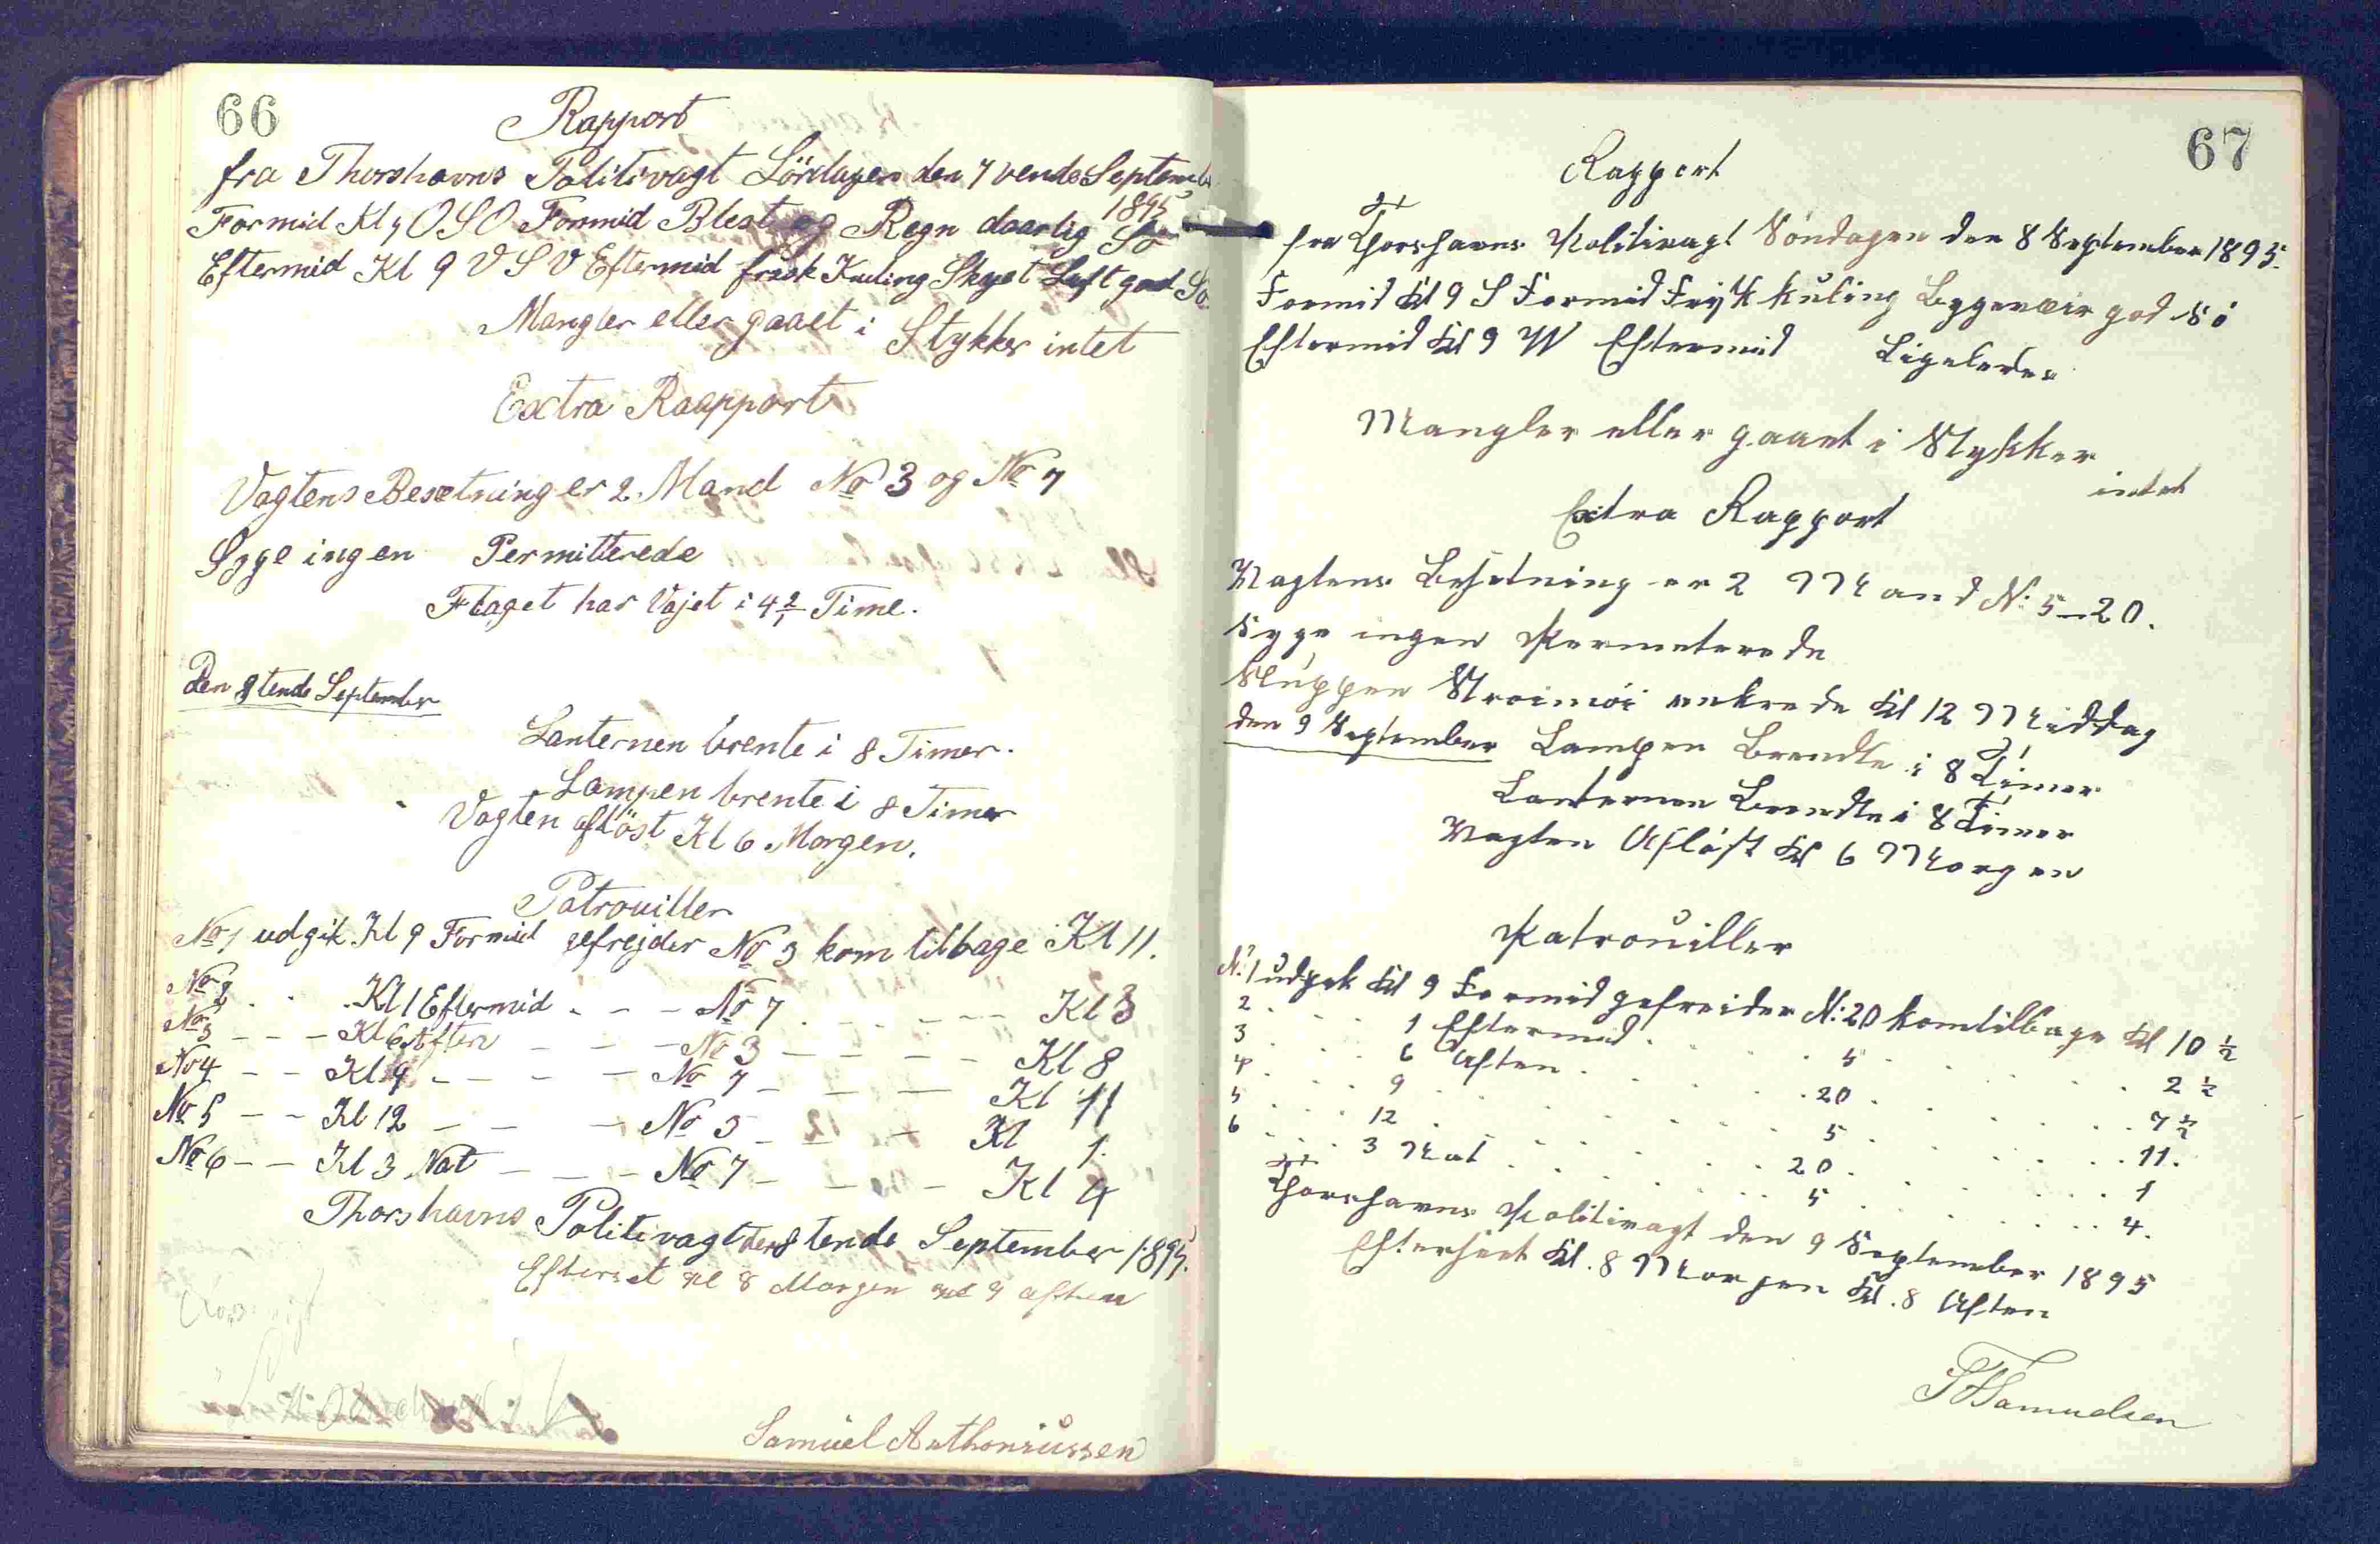 66
Rapport
fra Thorshavns Politivagt Lördagen den 7vende Septemb
1895
Formid Kl 9 OSO Formid Blest og Regn daarlig Sö
Eftermid Kl 9 VSV Eftermid frisk Kuling Skyet Luft god Sö
Mangler eller gaaet i Stykker intet
Extra Raapport
Vagtens Besetning er 2 Mand No 3 og No 7
Syge ingen Permitterede
Flaget har Vajet i 4 1/2 Time.
Den 8tende September
Lanternen brente i 8 Timer.
Lampen brente i 8 Timer
Vagten aflöst Kl 6 Morgen.
Patrouiller
No 1 udgik Kl 9 Formid gefrejder No 3 kom tilbage Kl 11.
No 2 . . Kl 1 Eftermid - - - No 7 - - - - Kl 3
No 3 - - - Kl 6 Aften - - - No 3 - - - - Kl 8
No 4 - - Kl 9 - - - - No 7 - - - Kl 11
No 5 - - Kl 12 - - - No 3 - - - Kl 1.
No 6 - - Kl 3 Nat - - - No 7 - - - Kl 4
Thorshavns Politivagt den 8tende September 1895.
Efterset Kl 8 Morgen Kl 9 aften
Samúel Anthoniússen
67
Rapport
fra Thorshavns Politivagt Söndagen den 8 September 1895.
Formid Kl 9 S Formid Frisk Kuling Bygeveir god Sö
Eftermid Kl 9 W Eftermid Ligeledes
Mangler eller gaaet i Stykker
intet
Extra Rapport
Vagtens Besetning er 2 Mand N: 5-20.
Syge ingen Permeterede
Sluppen Stroimöi ankrede Kl 12 Middag
den 9 September Lampen Brendte i 8 Timer
Lanternen Brendte i 8 Timer
Vagten Aflöst Kl 6 Morgen
Patrouiller
N: 1 udgek Kl 9 Formid gefreider N: 20 kom tilbage Kl 10 1/2
2 . . . 1 Eftermid . . . . 5 . . . . 2 1/2
3 . . . 6 Aften . . . . 20 . . . . 7 1/2
4 . . . 9 . . . . 5 . . . . 11.
5 . . . 12 . . . . 20 . . . . 1
6 . . . 3 Nat . . . . 5 . . . . 4.
Thorshavns Politivagt den 9 September 1895
Efterseet Kl. 8 Morgen Kl. 8 Aften
Samuelsen